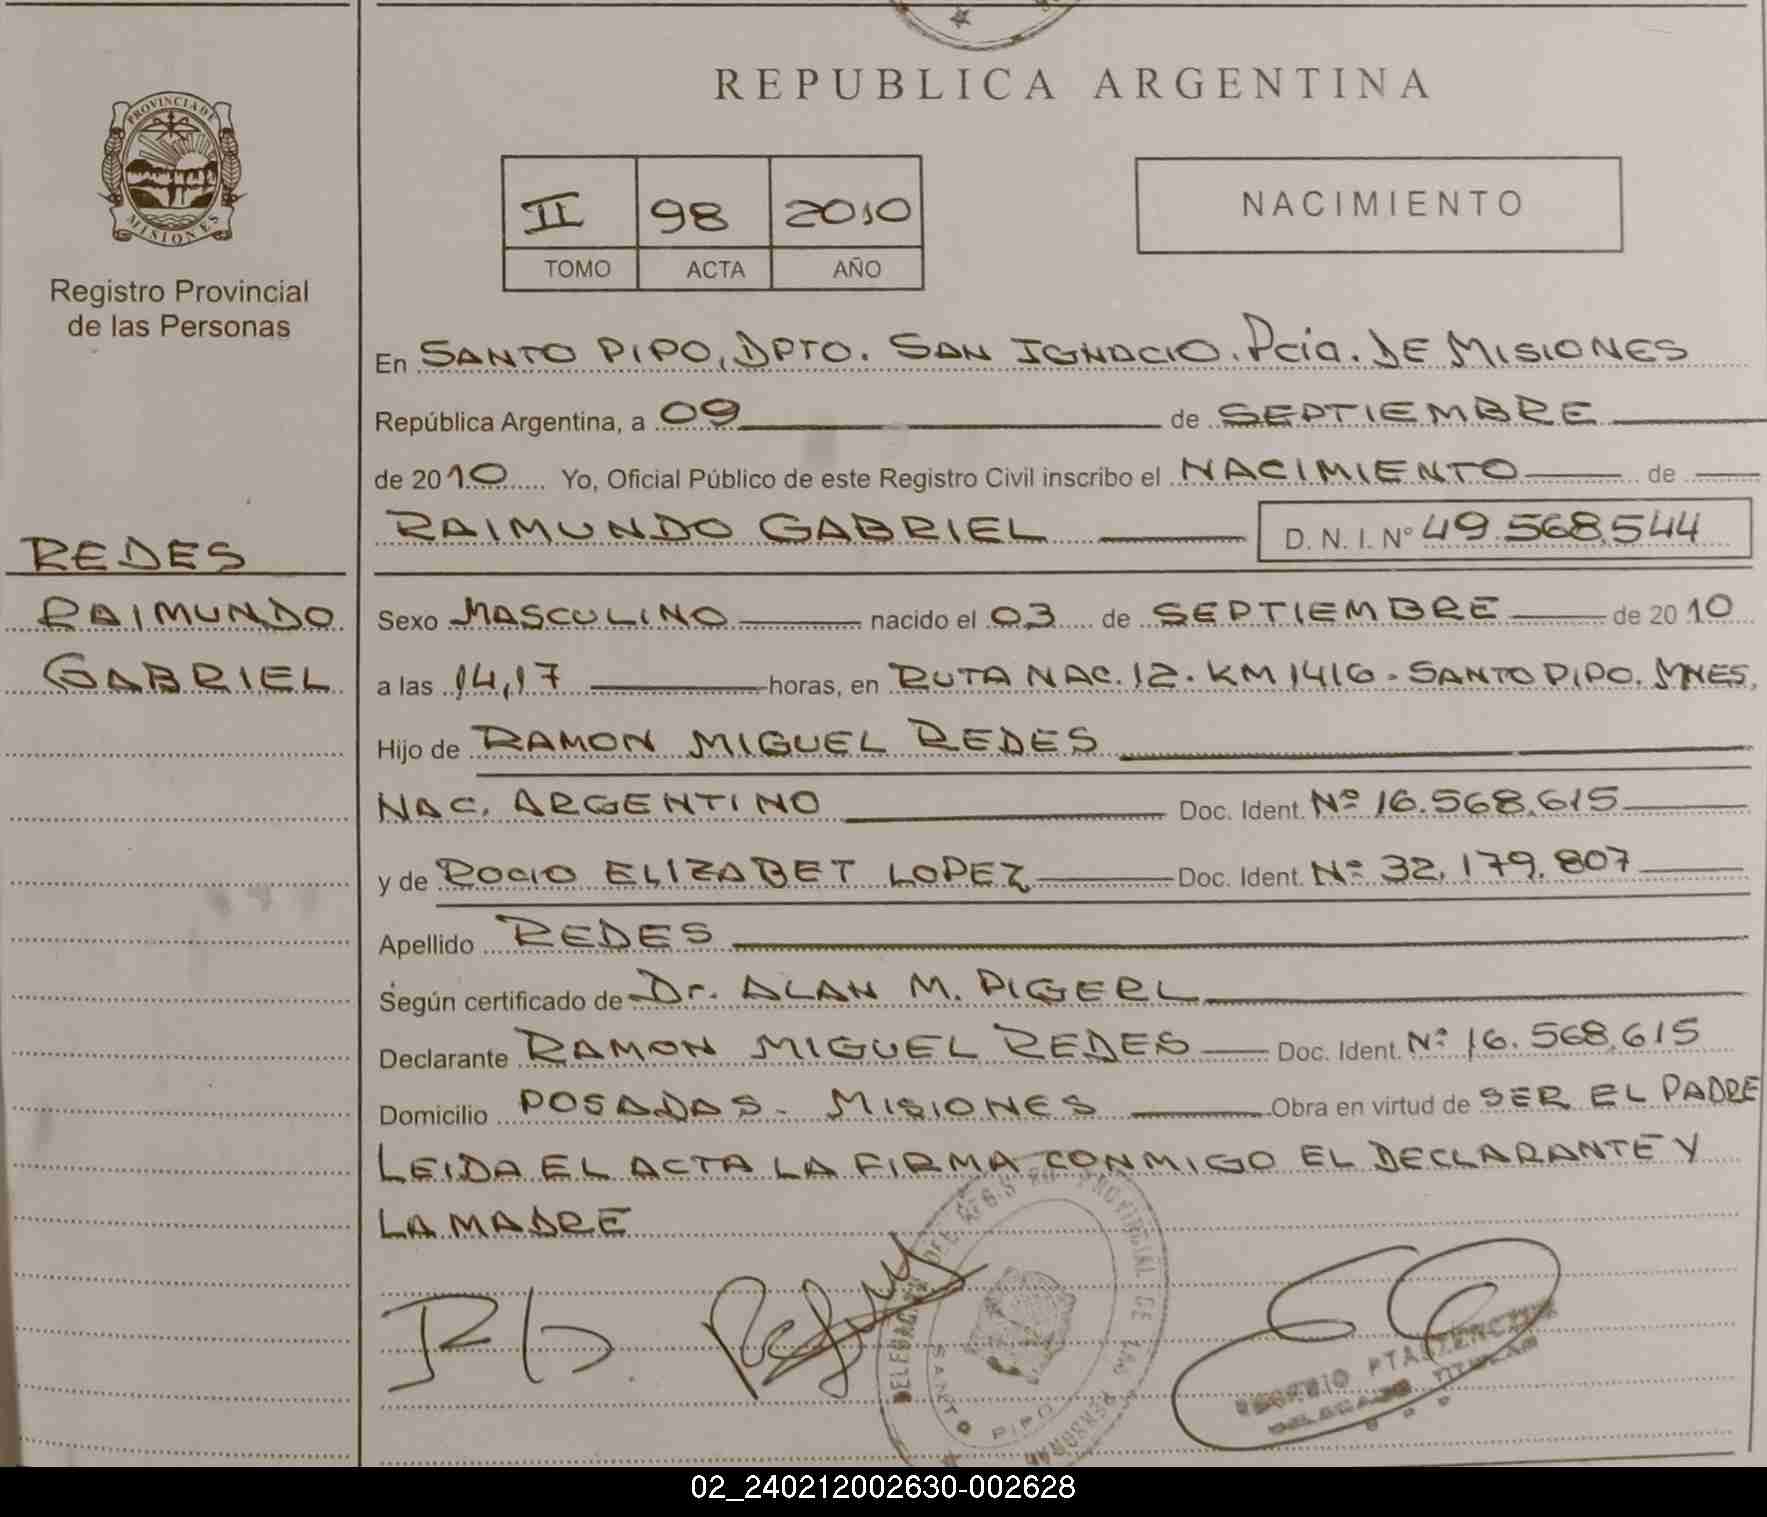 REPUBLICA ARGENTINA
PROVINCIA DE
MISIONES
Registro Provincial
de las Personas
II 98 2010
TOMO ACTA AÑO
NACIMIENTO
En SANTO PIPO, DPTO. SAN IGNACIO. Pcia. DE MISIONES
República Argentina, a 09 de SEPTIEMBRE
de 2010 Yo, Oficial Público de este Registro Civil inscribo el NACIMIENTO de
RAIMUNDO GABRIEL D. N. I. Nº 49.568.544
REDES
RAIMUNDO
GABRIEL
Sexo MASCULINO nacido el 03 de SEPTIEMBRE de 2010
a las 14,17 horas, en RUTA NAC. 12. KM 1416 - SANTO PIPO. MNES.
Hijo de RAMON MIGUEL REDES
NAC. ARGENTINO Doc. Ident. Nº 16.568.615
y de ROCIO ELIZABET LOPEZ Doc. Ident. Nº 32.179.807
Apellido REDES
Según certificado de Dr. ALAN M. PIGERL
Declarante RAMON MIGUEL REDES Doc. Ident. Nº 16.568.615
Domicilio POSADAS - MISIONES Obra en virtud de SER EL PADRE
LEIDA EL ACTA LA FIRMA CONMIGO EL DECLARANTE Y
LA MADRE
DELEGACION DEL REG. PROVINCIAL DE LAS PERSONAS
SANTO PIPO
02_240212002630-002628